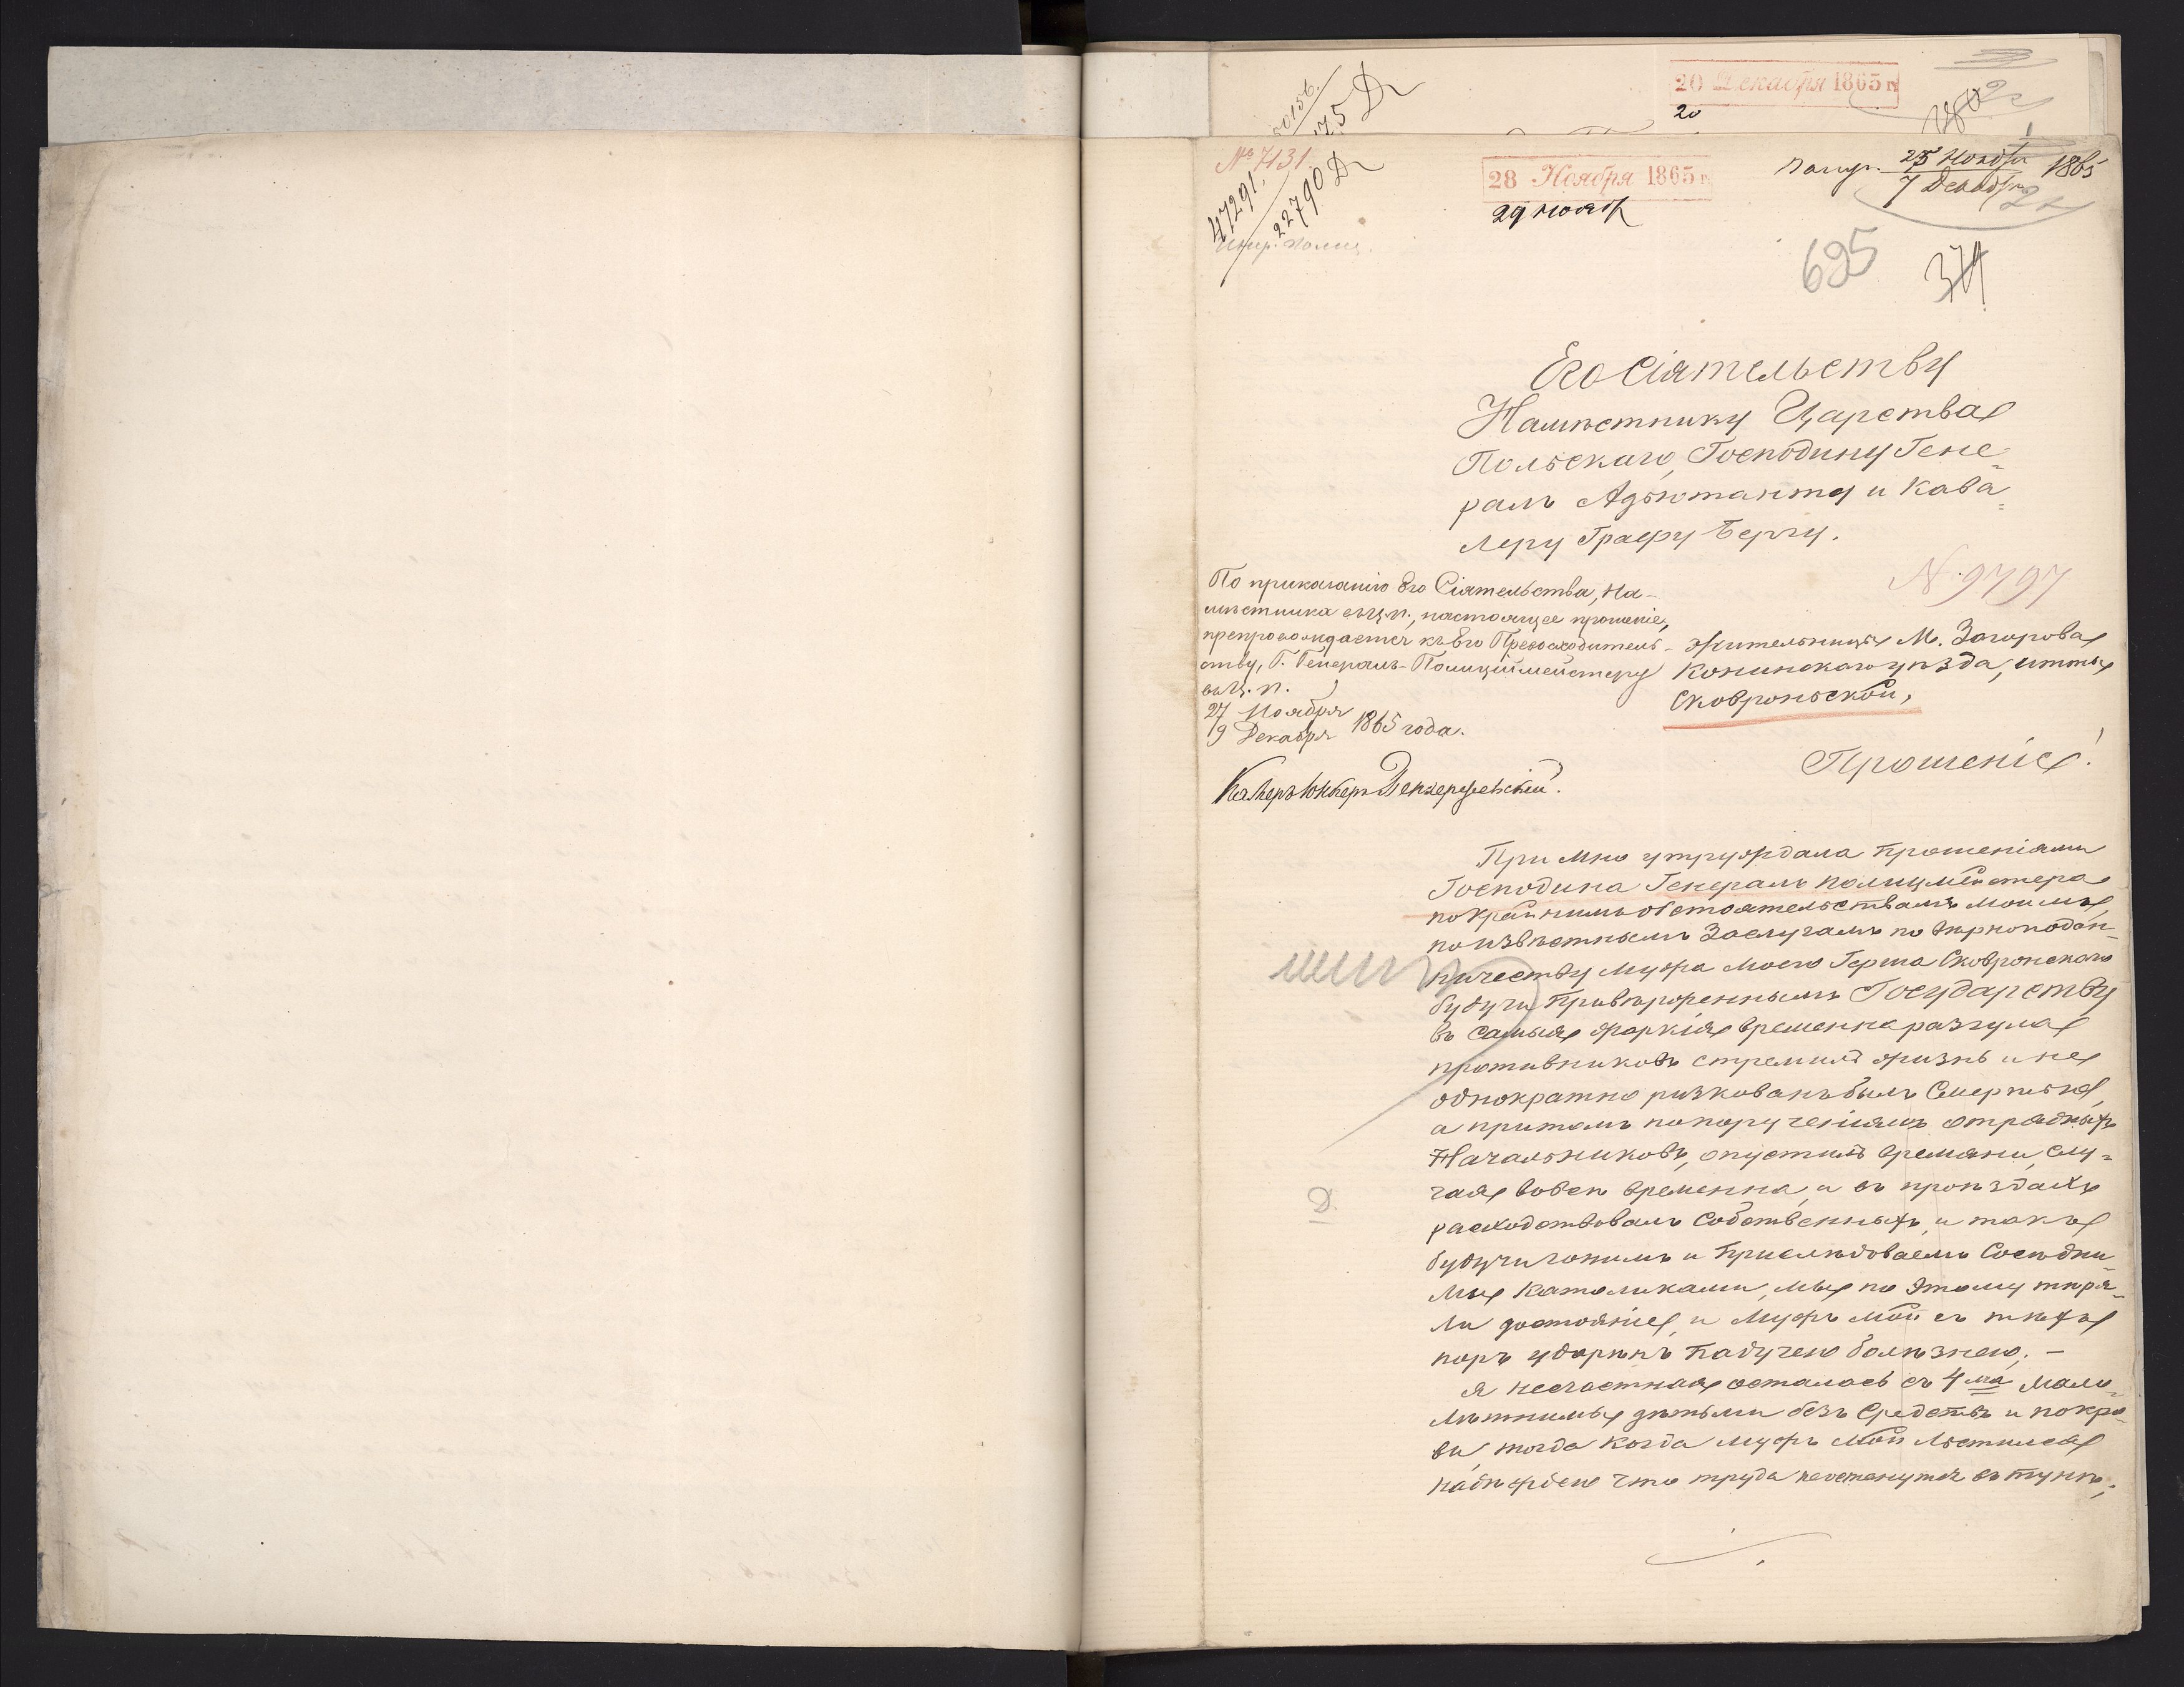 20 Декабря 1865 г.
20
№ 7131
47291
22790 Д
28 Ноября 1865 г.
29 нояб
25 Ноября
7 Декабря
1865
695
Его Сіятельству
Намѣстнику Царства
Польскаго, Господину Гене-
ралъ Адъютанту и Кава-
леру Графу Бергу.
N. 9797
По приказанію Его Сіятельства, На-
мѣстника въ Ц. П., настоящее прошеніе,
препровождается къ Его Превосходитель-
ству, Г. Генералъ-Полиціймейстеру
въ Ц. П.
27 Ноября
9 Декабря 1865 года.
Камеръ Юнкеръ
Жительницы М. Загорова
Конинскаго уѣзда,
Сковроньской,
Прошеніе!
При мно утруждала прошеніями
Господина Генералъ полицмейстера
по крайнимъ обстоятельствамъ моимъ,
по извѣстнымъ Заслугамъ по вѣрноподан-
ничеству мужа моего Герша Сковронскаго
будучи привѣрженнымъ Государству
въ самыя жаркія временна разгула
противниковъ стремилъ жизнь и не
однократно рискованъ былъ Смертью,
а притомъ по порученіямъ отрядныхъ
Начальниковъ, опустилъ времяни, слу-
чая вовсе временна, и въ проѣздахъ
расходствовалъ собственныхъ, и такъ
будучи гонимъ и прислѣдоваемъ Сосѣдни-
мы Католиками, мы по этому тиря-
ли достояніе, и Мужъ мой съ тѣхъ
поръ ударенъ падучею болѣзнею. —
я несчастная осталась съ 4 ма мало-
лѣтнимы дѣтьми безъ Средствъ и покро-
ви, тогда когда мужъ мой льстился
надѣждою что труда неостанутся въ тунѣ,